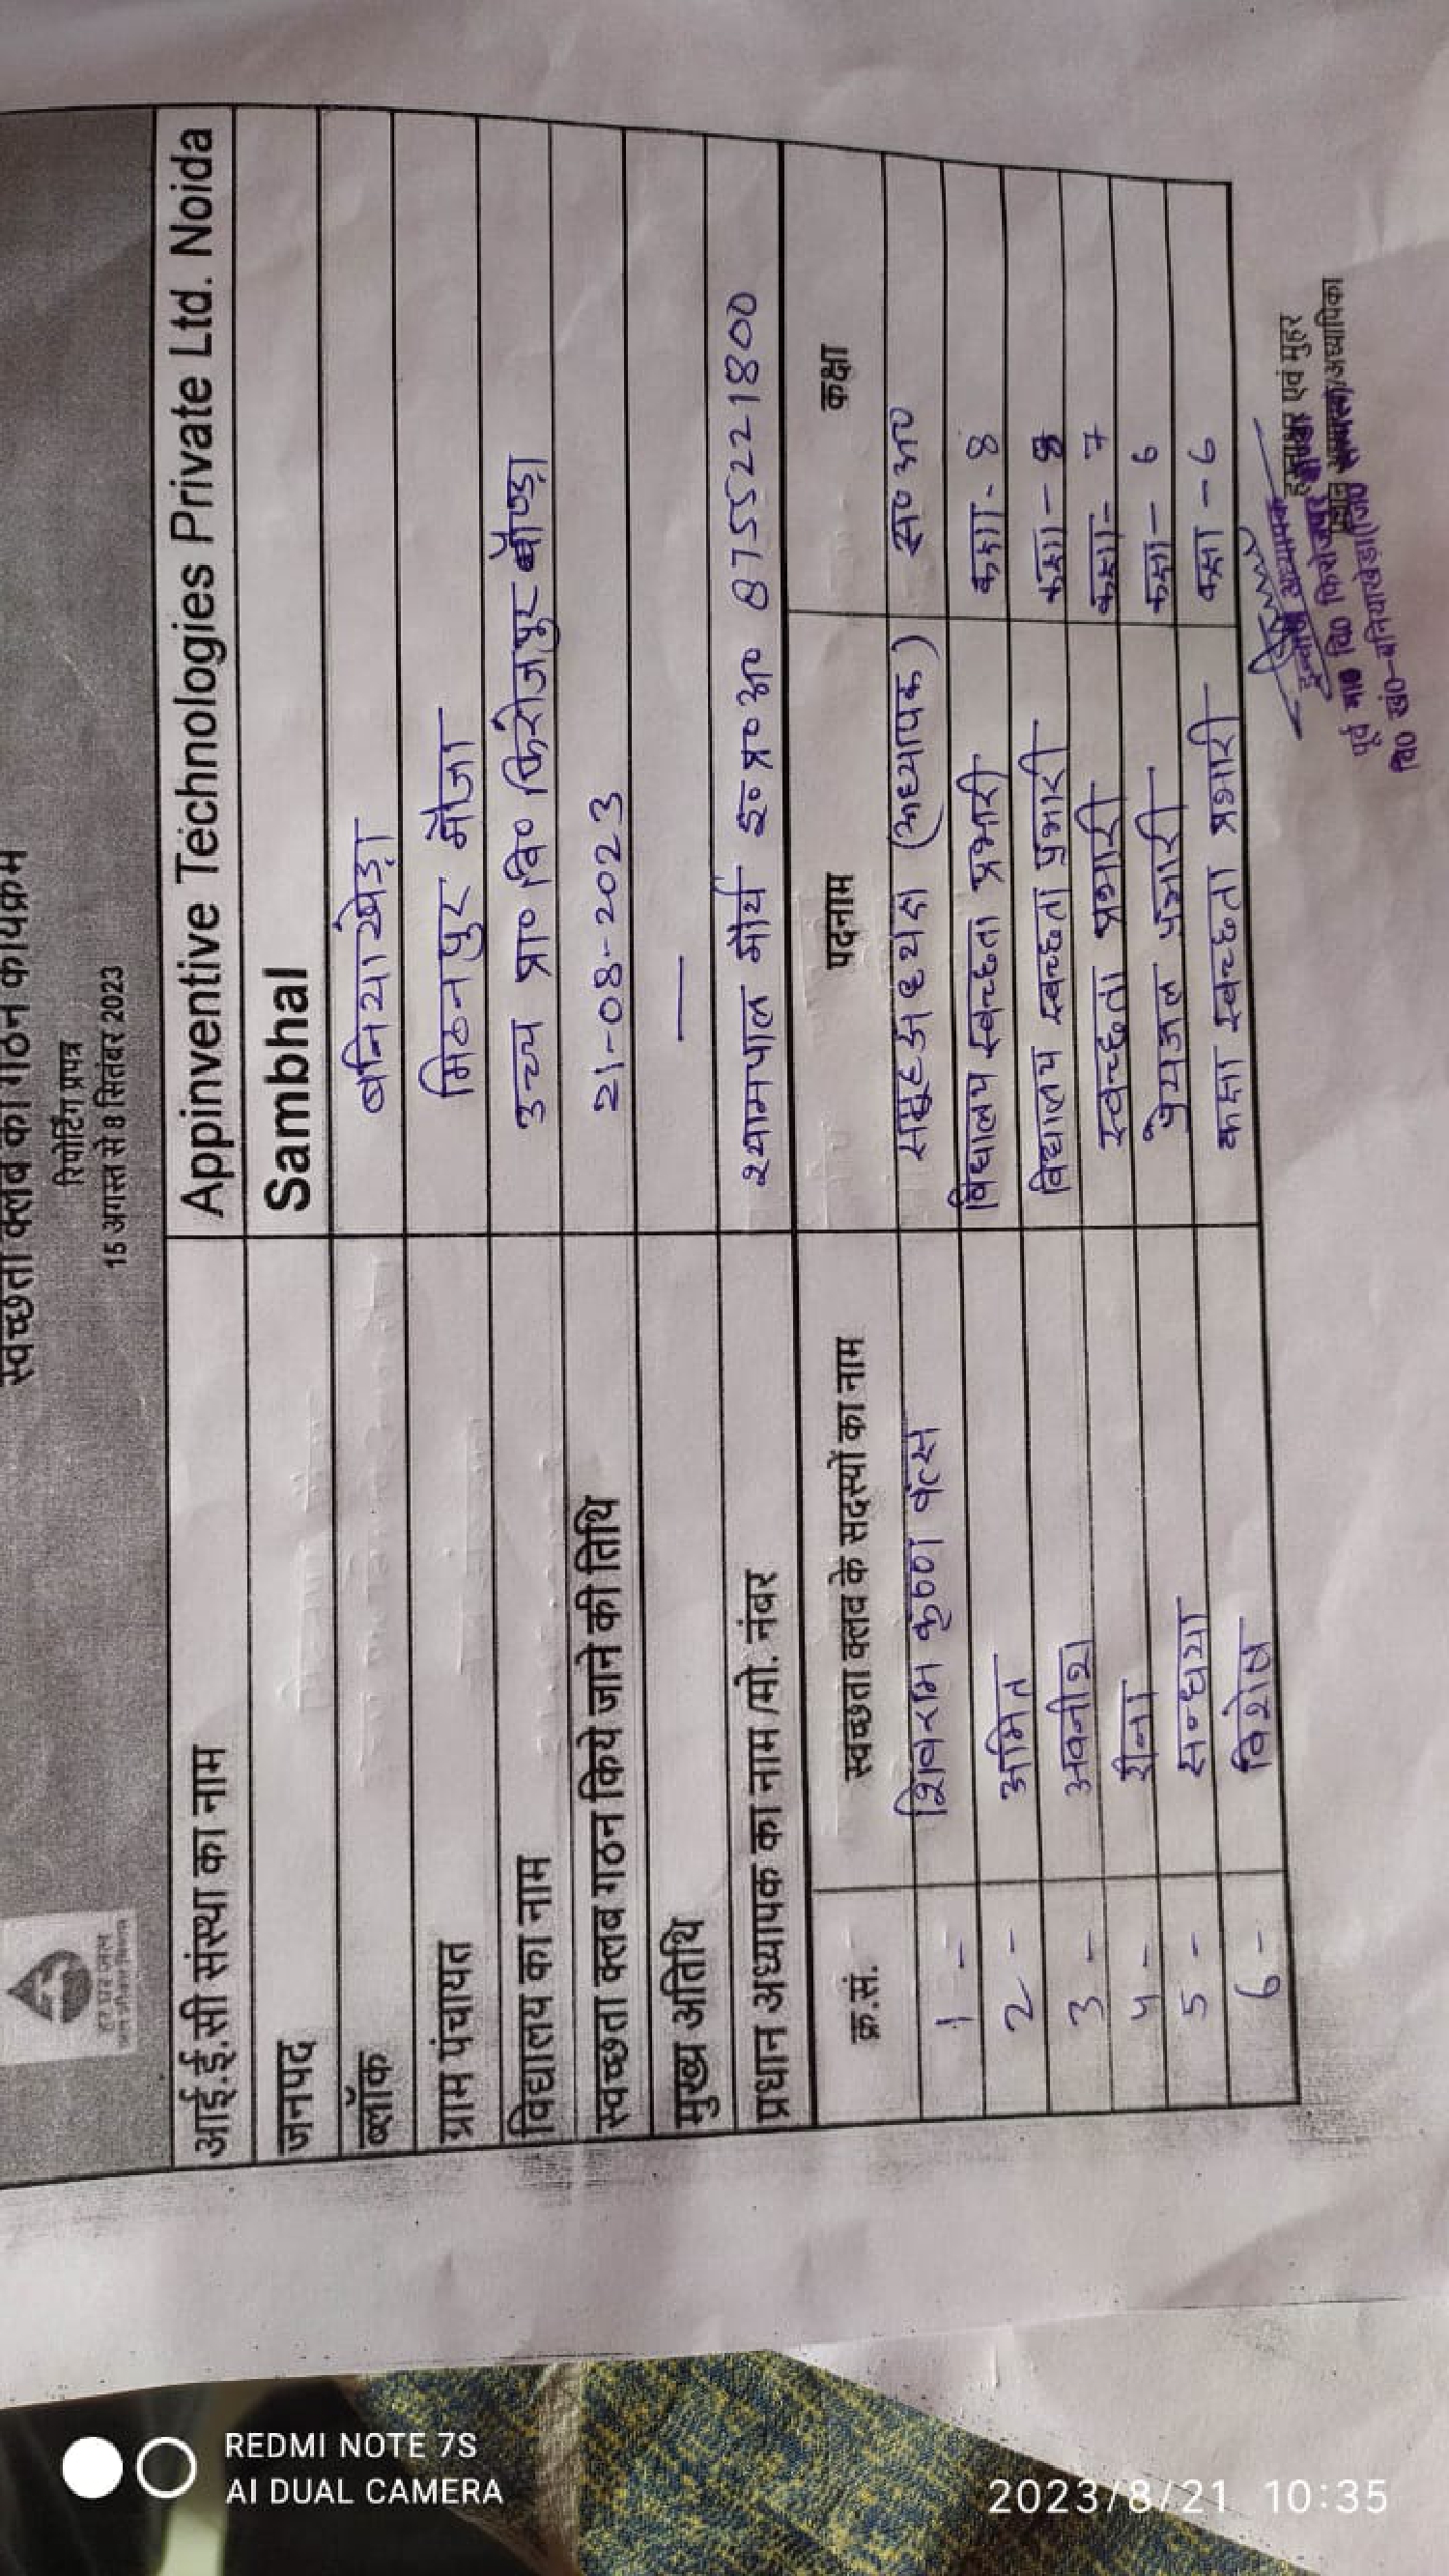 स्वच्छता क्लब का गठन कार्यक्रम
रिपोर्टिंग प्रपत्र
15 अगस्त से 8 सितंबर 2023
हर घर जल
जल जीवन मिशन
आई.ई.सी संस्था का नाम Appinventive Technologies Private Ltd. Noida
जनपद Sambhal
ब्लॉक बनियाखेड़ा
ग्राम पंचायत मिठनपुर मौजा
विद्यालय का नाम उच्च प्रा० वि० फिरोजपुर
स्वच्छता क्लब गठन किये जाने की तिथि 21-08-2023
मुख्य अतिथि —
प्रधान अध्यापक का नाम /मो. नंबर श्यामपाल मौर्य इ० प्र० अ० 8755221800
क्र.सं. स्वच्छता क्लव के सदस्यों का नाम पदनाम कक्षा
1 - शिवराम कृष्ण वत्स समूह अध्यक्ष (अध्यापक) स० अ०
2 - अमित विद्यालय स्वच्छता प्रभारी कक्षा - 8
3 - अवनीश विद्यालय स्वच्छता प्रभारी कक्षा - 8
4 - रीना स्वच्छता प्रभारी कक्षा - 7
5 - सन्ध्या पेयजल प्रभारी कक्षा - 6
6 - विशेष कक्षा स्वच्छता प्रभारी कक्षा - 6
हस्ताक्षर एवं मुहर
/अध्यापिका
इन्चार्ज अध्यापक
पूर्व मा० वि० फिरोजपुर
वि० खं०-बनियाखेड़ा
REDMI NOTE 7S
AI DUAL CAMERA
2023/8/21 10:35